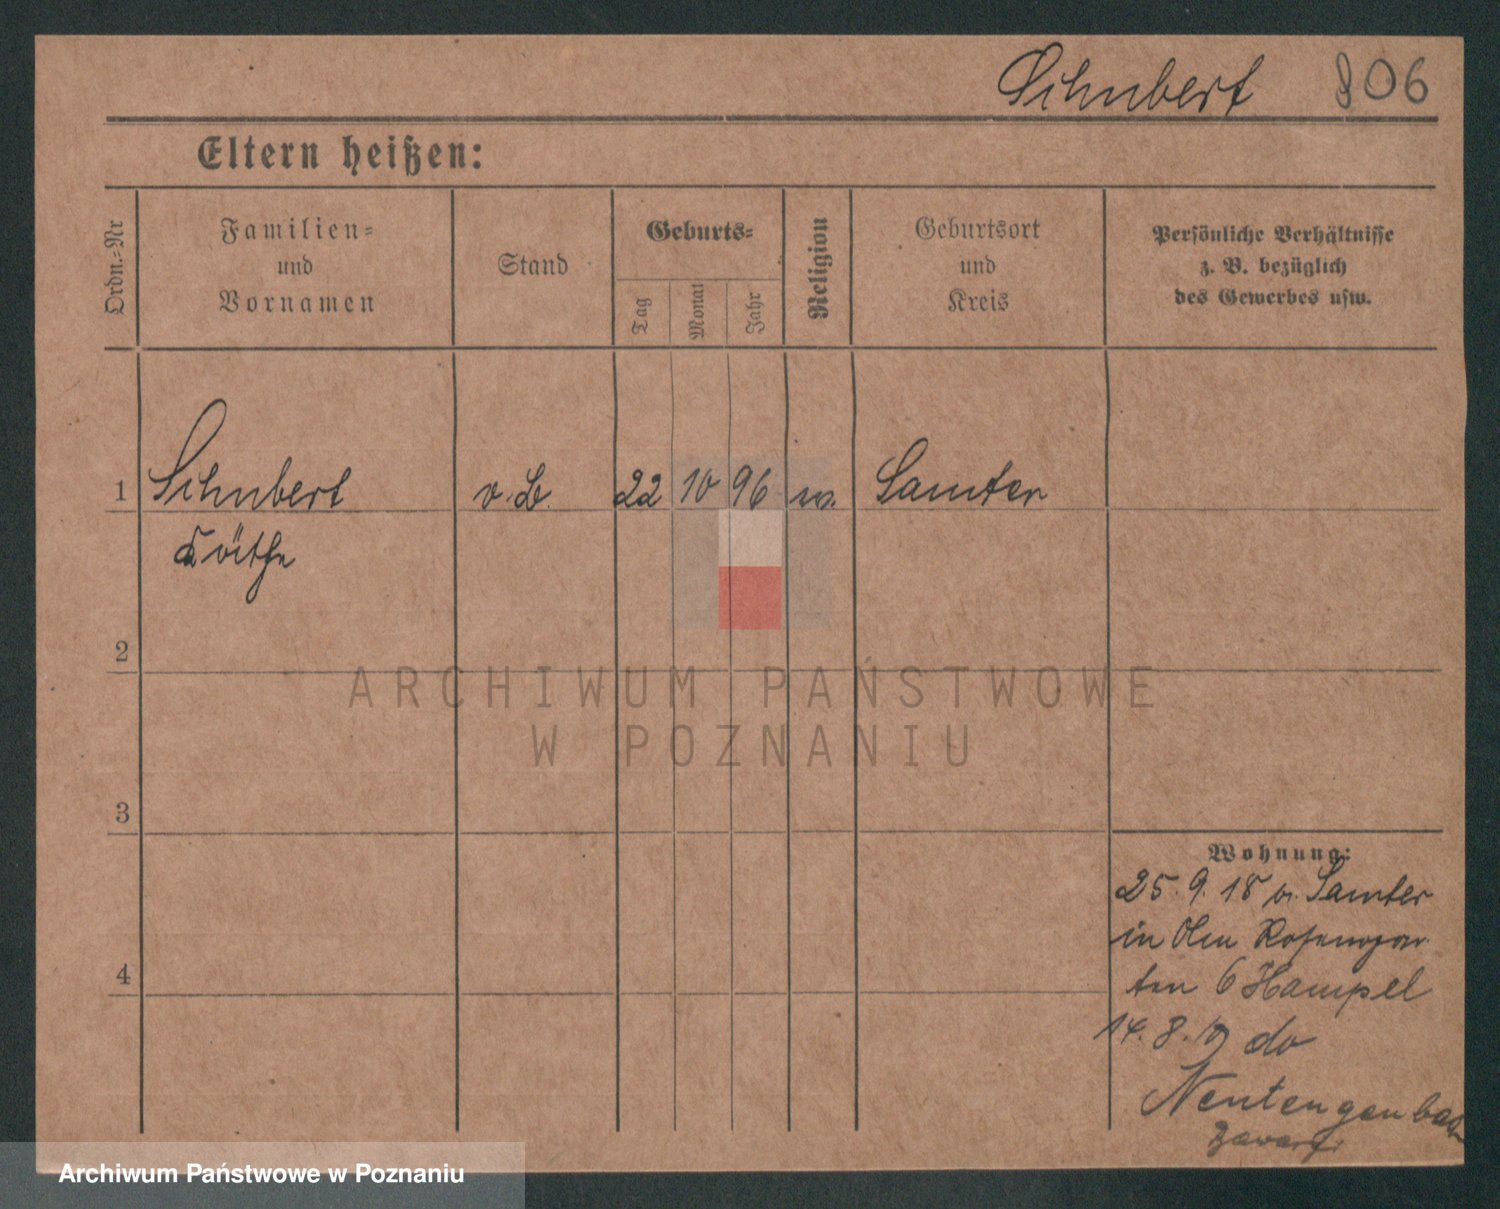 Schubert 806
Eltern heißen:
Ordn.=Nr
Familien=
und
Vornamen
Stand
Geburts=
Tag
Monat
Jahr
Religion
Geburtsort
und
Kreis
Persönliche Verhältnisse
z. B. bezüglich
des Gewerbes usw.
1 Schubert v. B. 22 10 96 Samter
Käthe
2
3
4
Wohnung:
25. 9. 18 v. Samter
in Rosengar
ten 6 Hampel
14. 8. 19 do
ARCHIWUM PAŃSTWOWE
W POZNANIU
Archiwum Państwowe w Poznaniu